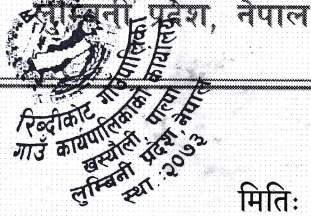 लुम्बिनी प्रदेश, नेपाल
रिब्दीकोट गाउँपालिका
गाउँ कार्यपालिकाको कार्यालय
खस्यौली पाल्पा
लुम्बिनी प्रदेश नेपाल
स्था. २०७३
मितिः